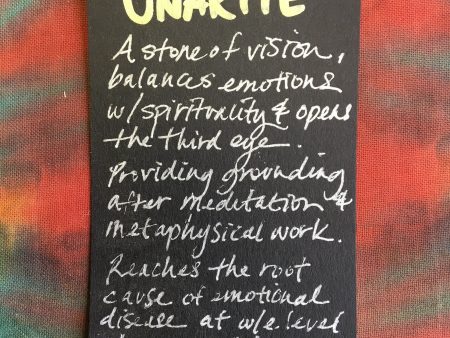 UNAKITE
A stone of vision,
balances emotions
w/spirituality & opens
the third eye.
Providing grounding
after meditation &
metaphysical work.
Reaches the root
cause of emotional
disease at w/e level